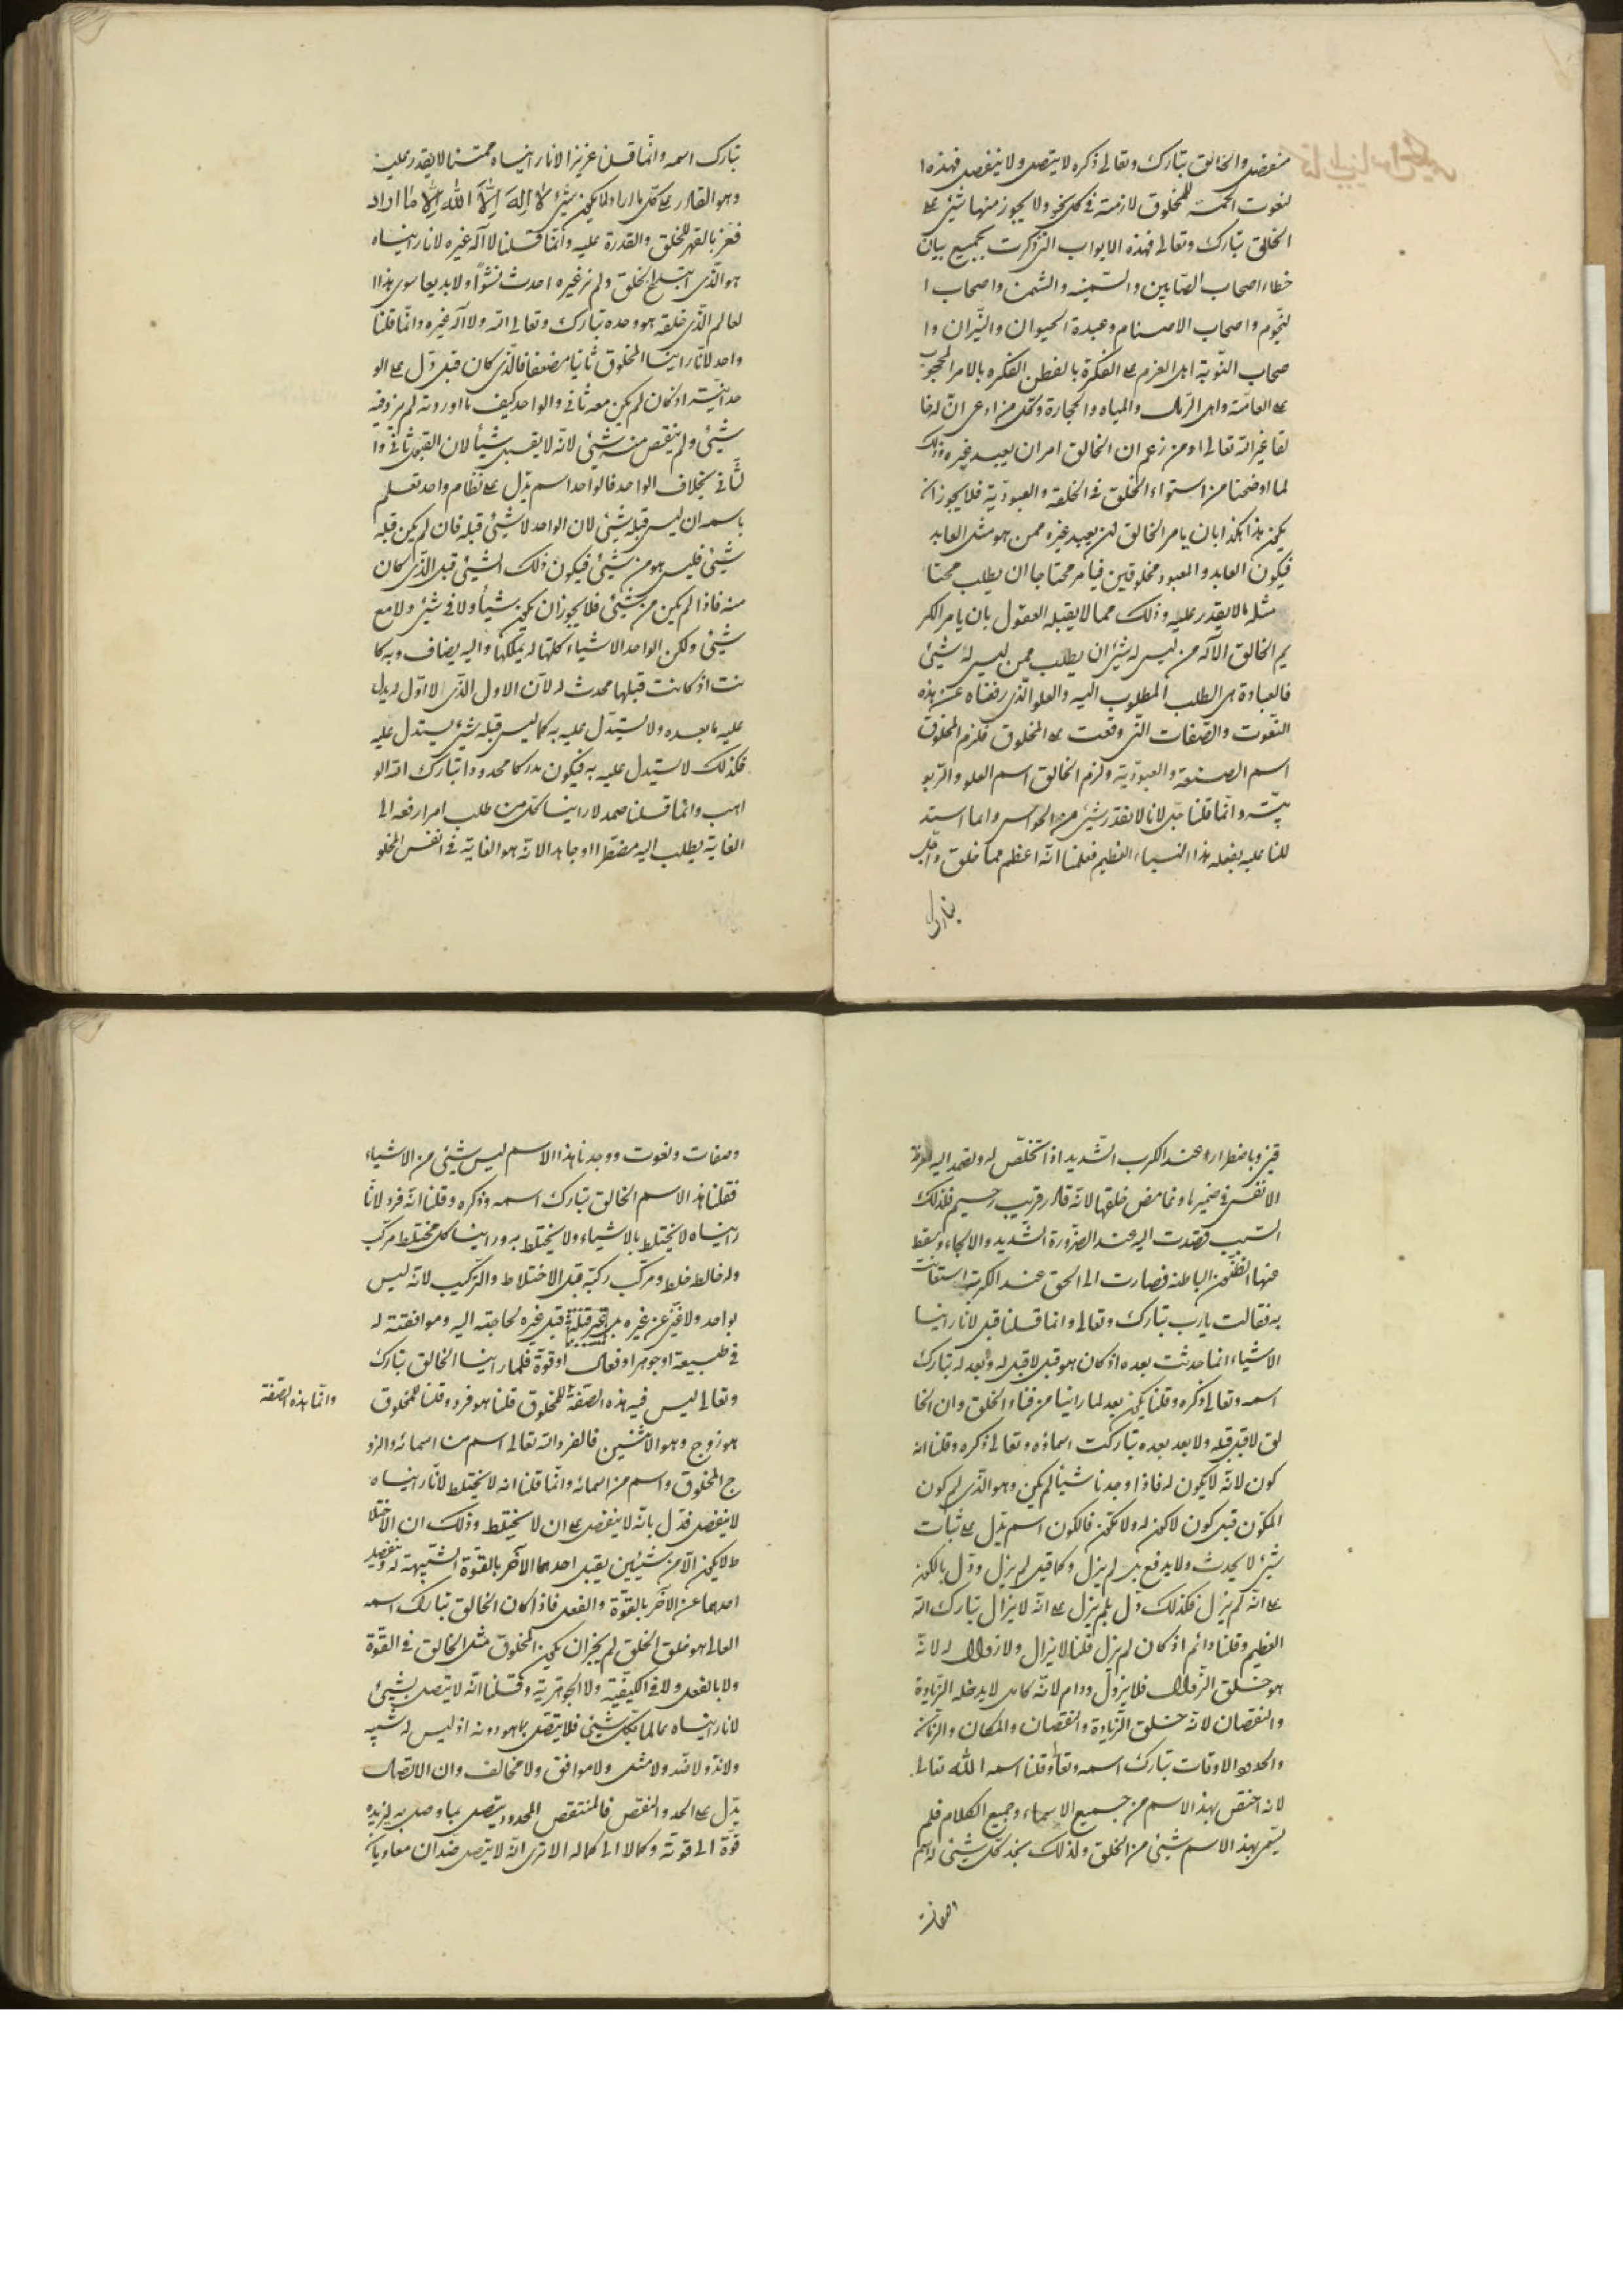 منفصل والخالق تبارك وتعالى ذكره لا يتصل ولا ينفصل فهذه ا
لنعوت الخمسة للمخلوق لازمة فى كل نحو ولا يجوز منها شئ على
الخالق تبارك وتعالى فهذه الابواب التى ذكرت بجميع بيان
خطاء اصحاب الصابين والسمنيه والشمن واصحاب ا
لنجوم واصحاب الاصنام وعبدة الحيوان والنيران وا
صحاب النوبة اهل العزم على الفكرة بالفطن الفكره بالامر المحجوب
على العامة واهل الرمل والمياه والحجارة وكل من ادعى ان له خا
لقا غير الله تعالى او من زعم ان الخالق امر ان يعبد غيره وذلك
لما اوضحنا من استواء الخلق فى الخلقة والعبودية فلا يجوز ان
يكون هذا هكذا بان يامر الخالق لمن يعبد غيره ممن هو مثل العابد
فيكون العابد والمعبود مخلوقين فيأمر محتاجا ان يطلب محتا
مثله ما لا يقدر عليه وذلك مما لا يقبله العقول بان يامر الكر
يم الخالق الآله من ليس له شئ ان يطلب ممن ليس له شئ
فالعبادة هى الطلب المطلوب اليه والعلو الذى رفعناه عن هذه
النعوت والصفات التى وقعت على المخلوق فلزم المخلوق
اسم الصنعة والعبودية ولزم الخالق اسم العلو والربو
بية وانما قلنا جل لانا لا نقدر شئ من الحواس وانما استد
للنا عليه بفعله هذا العظيم فعلمنا انه اعظم مما خلق واجل
تبارك
تبارك اسمه وانما قلنا عزيزا لانا رايناه ممتنعا لا يقدر عليه
وهو القادر على كل ما اراد لا يكون شئ لا اله الا الله الا ما اراد
فعز بالقهر للخلق والقدرة عليه وانما قلنا لا آله غيره لانا رايناه
هو الذى ابتدع الخلق ولم نر غيره احدث نشوًا ولا بديعا سوى هذا ا
لعالم الذى خلقه هو وحده تبارك وتعالى الله ولا آله غيره وانما قلنا
واحد لانا راينا المخلوق ثانيا مضعفا فالذى كان قبل دل على الو
حدانية اذ كان لم يكن معه ثانى والواحد كيف ما اوردته لم يزد فيه
شئ ولم ينقص منه شئ لانه لا يقبل شيأ لان القبول ثانى وا
لثانى بخلاف الواحد فالواحد اسم يدل على نظام واحد تعلم
باسمه ان ليس قبله شئ لان الواحد لا شئ قبله فان لم يكن قبله
شئ فليس هو من شئ فيكون ذلك الشئ قبل الذى كان
منه فاذا لم يكن من شئ فلا يجوز ان يكون شيأ ولا فى شئ ولا مع
شئ ولكن الواحد الاشياء كلها له يملكها واليه يضاف وبه كا
نت اذ كانت قبلها محدث له لان الاول الذى لا اول له يدل
عليه ما بعده ولا يستدل عليه به كما ليس قبله شئ يستدل عليه
فكذلك لا يستدل عليه به فيكون مدركا محدودا تبارك الله الو
اهب وانما قلنا صمد لا راينا كل من طلب امرا رفعه الى
الغاية يطلب اليه مضطرا او جاهدا لانه هو الغاية فى انفس المخلو
قين وباضطراره عند الكرب الشديد اذا تخلص له وتصمد اليه
الانفس فى ضميرها وغامض خلقها لانه قادر قريب رحيم فلذلك
السبب قصدت اليه عند الضرورة الشديد والالجاء وسقط
منها الظنون الباطلة فصارت الى الحق عند الكرب استغاثت
به فقالت يا رب تبارك وتعالى وانما قلنا قبل لانا راينا
الاشياء انما حدثت بعده اذ كان هو قبل لا قبل له وبعد له تبارك
اسمه وتعالى ذكره وقلنا يكون بعد لما راينا من فناء الخلق وان الخا
لق لا قبل قبله ولا بعد بعده تباركت اسماؤه وتعالى ذكره وقلنا انه
كون لانه لا يكون له فاذا وجدنا شيأ لم يكن وهو الذى لم كون
المكون قبل كون لا كون له ولا تكون فالكون اسم يدل على ثبات
شئ لا يحدث ولا يدفع بل لم يزل وكما قيل لم يزل ودل بالكون
على انه لم يزل فكذلك دل بلم يزل على انه لا يزال تبارك الله
العظيم وقلنا دائم اذ كان لم يزل قلنا لا يزال ولا زوال له لانه
هو خلق الزوال فلا يزول ودام لانه كامل لا يدخله الزيادة
والنقصان لانه خلق الزيادة والنقصان والمكان والزمان
والحدود الاوقات تبارك اسمه وتعالى وقلنا اسمه الله تعالى
لانه اختص بهذا الاسم من جميع الاسماء وجميع الكلام فلم
يسمى بهذا الاسم شئ من الخلق ولذلك نجد كل شئ له اسم
وصفات
وصفات ونعوت ووجدنا هذا الاسم ليس شئ من الاشياء
فقلنا هذا الاسم الخالق تبارك اسمه وذكره وقلنا انه فرد لانا
رايناه لا يختلط بالاشياء ولا يختلط به وراينا كل مختلط مركب
وله خالط خلط ومركب ركبه قبل الاختلاط والتركيب لانه ليس
بواحد ولا غنى عن غيره بل قبل غيره لحاجته اليه وموافقته له
فى طبيعة او جوهر او فعل او قوة فلما راينا الخالق تبارك
وتعالى ليس فيه هذه الصفة للمخلوق قلنا هو فرد وقلنا للمخلوق
وانما هذه الصفة
هو زوج وهو الاثنين فالفرد الله تعالى اسم من اسمائه والزو
ج المخلوق واسم من اسمائه وانما قلنا انه لا يختلط لانا رايناه
لا ينفصل فدل بانه لا ينفصل على ان لا يختلط وذلك ان الاختلا
ط لا يكون الا من شيئين يقبل احدهما الآخر بالقوة الشبيهة له وينفصل
احدهما عن الآخر بالقوة والفعل فاذا كان الخالق تبارك اسمه
العالى هو خلق الخلق لم يجز ان يكون المخلوق مثل الخالق فى القوة
ولا بالفعل ولا فى الكيفية ولا الجوهرية وقلنا انه لا يتصل بشئ
لانا رايناه عالما بكل شئ فلا يتصل بما هو دونه اذ ليس له شبه
ولا ند ولا ضد ولا مثل ولا موافق ولا مخالف وان الاتصال
يدل على الحد والنقص فالمنتقص المحدود يتصل بما وصل به ليزيده
قوة الى قوته وكمالا الى كماله الا ترى انه لا يتصل ضدان